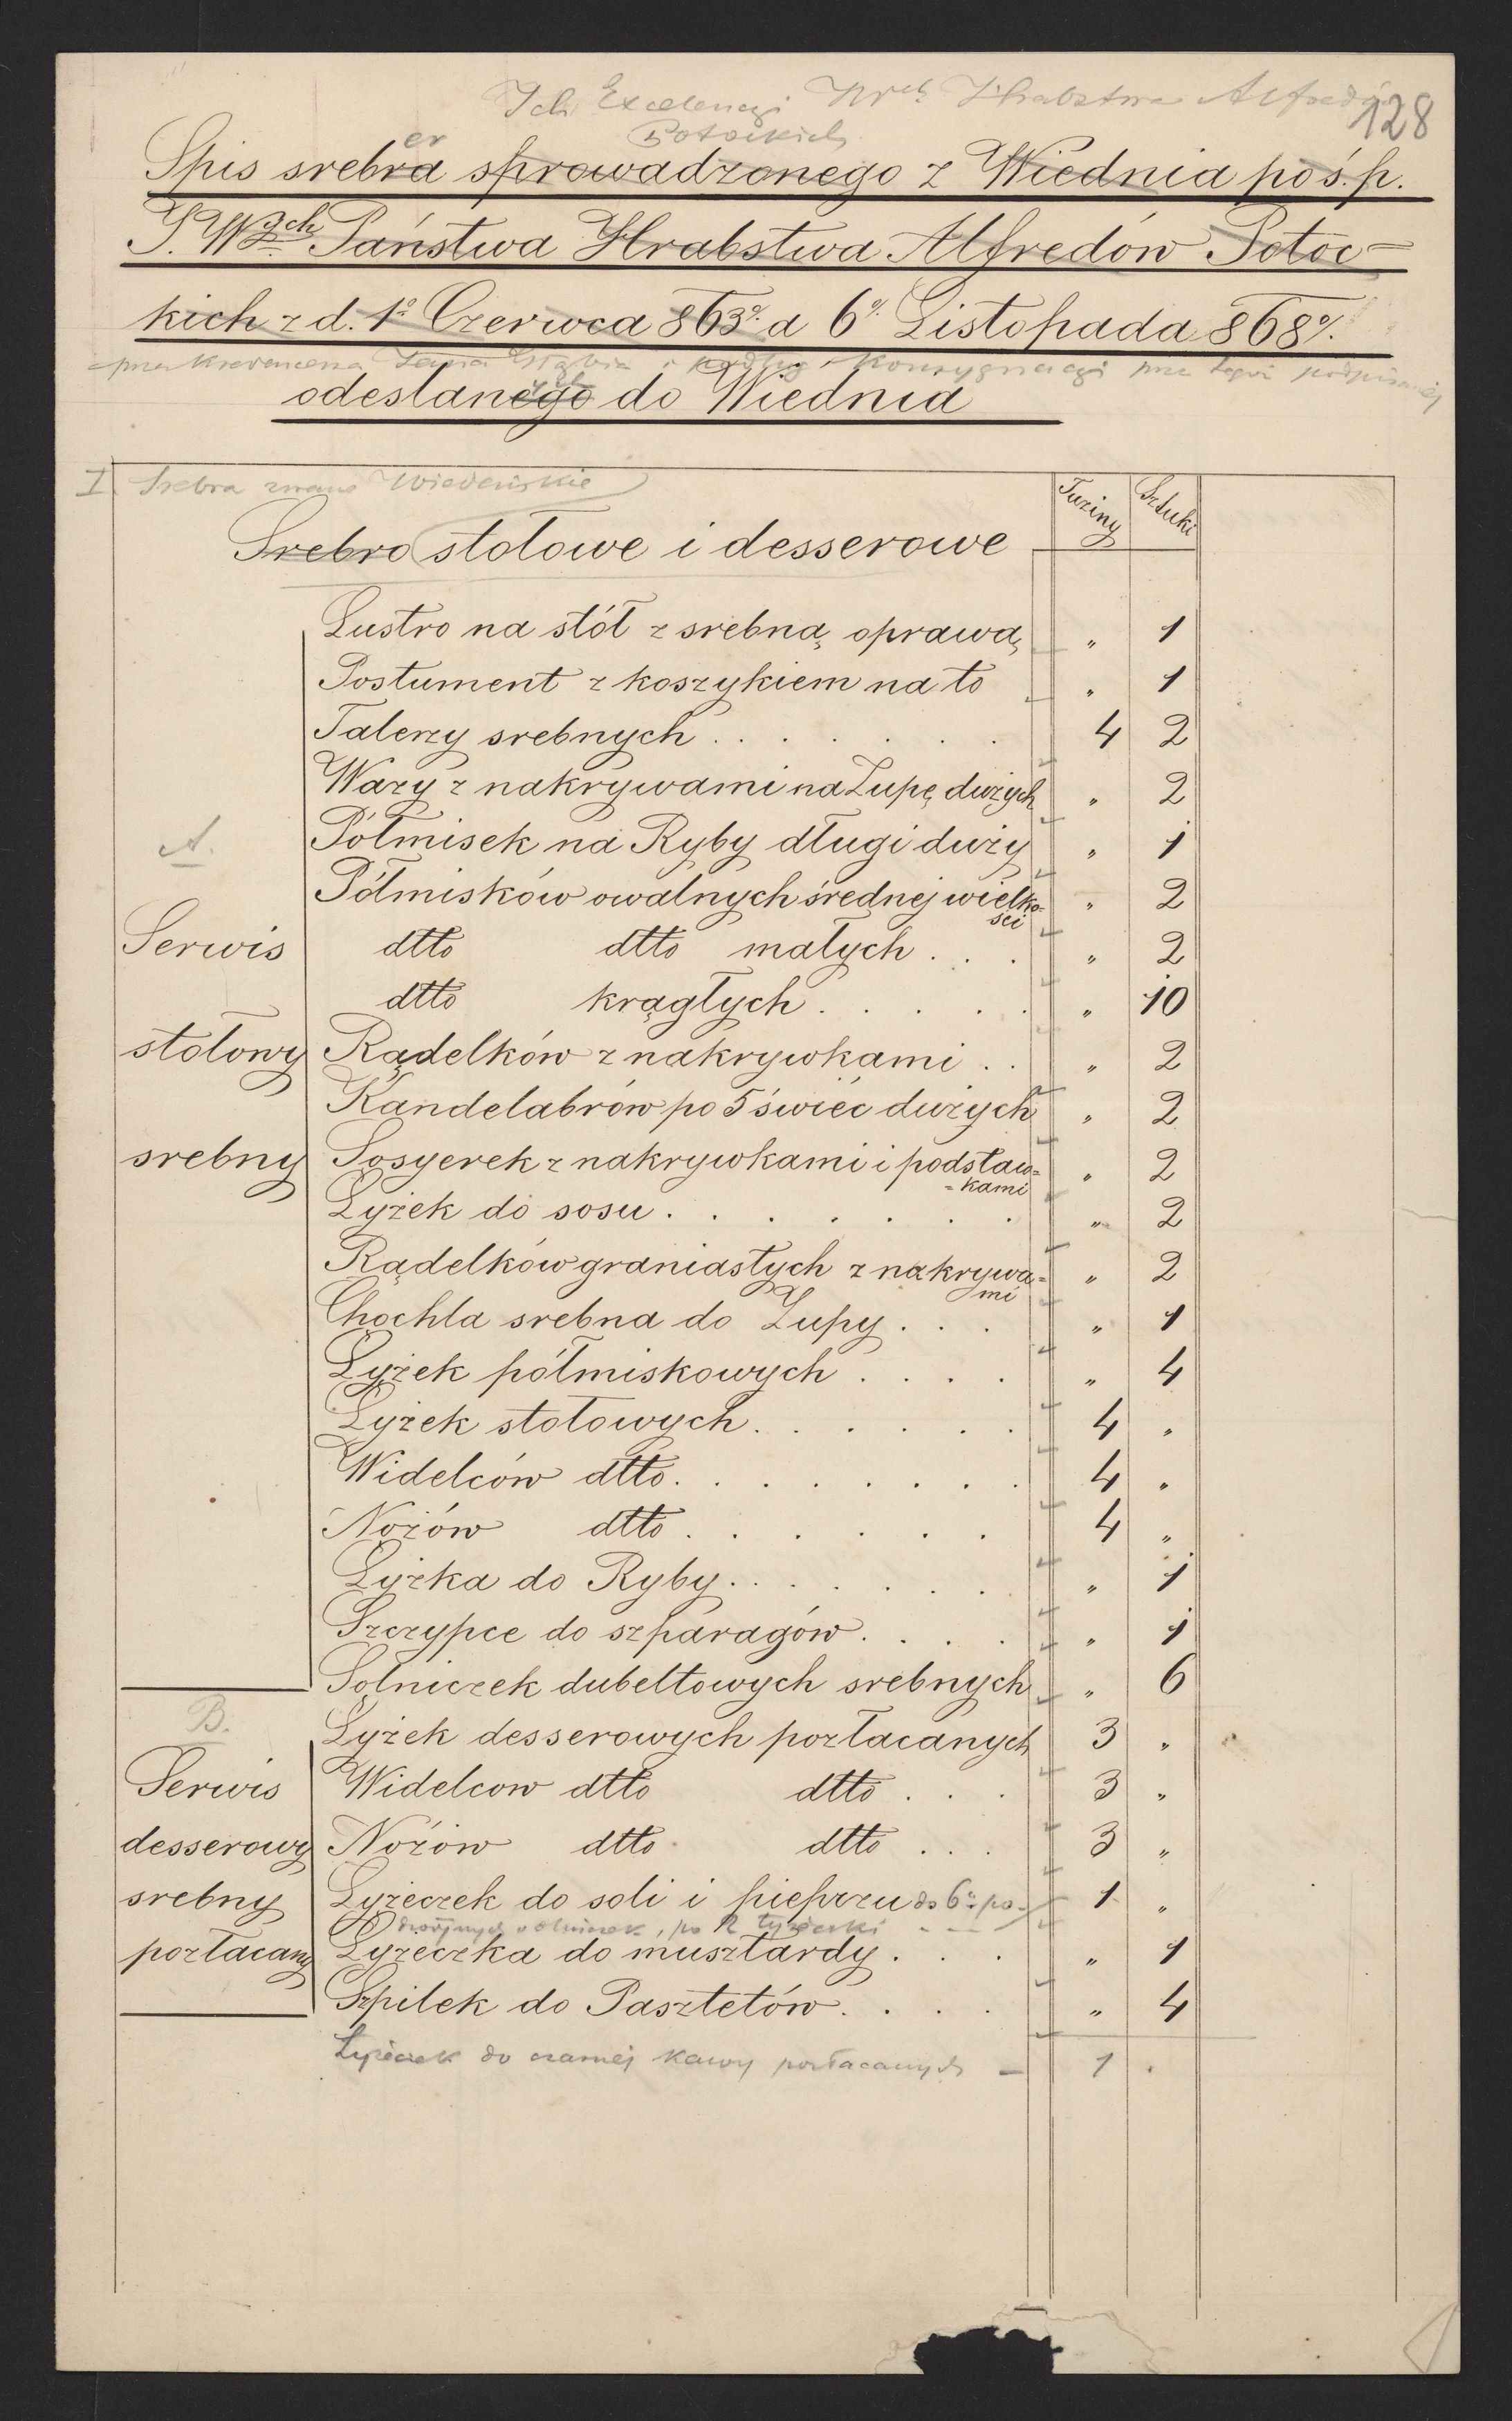 Ich Excelencyi Hrabstwa Alfredów
128
Potockich
er
Spis srebra sprowadzonego z Wiednia po ś.p.
J. W.znych Państwa Hrabstwa Alfredów Potoc=
kich z d. 1º Czerwca 863º a 6º Listopada 868º.
przez Kredencerza Jana i podług Konsygnacyi przez tegoż podpisanej
odesłanego do Wiednia
I. Srebra zwane Wiedeńskie
Tuziny Sztuki
Srebro stołowe i desserowe
Lustro na stół z srebną oprawą " 1
Postument z koszykiem na to " 1
Talerzy srebnych . . . . . . 4 2
Wazy z nakrywami na Zupę dużych " 2
A.
Półmisek na Ryby długi duży " 1
Półmisków owalnych średnej wielko= " 2
ści
Serwis dtto dtto małych . . . " 2
dtto krągłych . . . . . " 10
stołowy Rądelków z nakrywkami . . " 2
Kandelabrów po 5 świéc dużych " 2
srebny Sosyerek z nakrywkami i podstaw= " 2
=kami
Łyżek do sosu . . . . . . . . " 2
Rądelków graniastych z nakrywa= " 2
mi
Chochla srebna do Zupy . . . " 1
Łyżek półmiskowych . . . . " 4
Łyżek stołowych . . . . . . 4 "
Widelców dtto . . . . . . . . 4 "
Nożów dtto . . . . . . 4 "
Łyżka do Ryby . . . . . . . " 1
Szczypce do szparagów . . . . " 1
Solniczek dubeltowych srebnych " 6
B.
Łyżek desserowych pozłacanych 3 "
Serwis Widelcow dtto dtto . . . 3 "
desserowy Nożów dtto dtto . . . 3 "
srebny Łyżeczek do soli i pieprzu do 6u po- 1 "
dwójnych solniczek, po 2 łyżeczki - - -
pozłacany Łyżeczka do musztardy . . . " 1
Szpilek do Pasztetów . . . . " 4
Łyżeczek do czarnéj kawy pozłacanych — 1 .